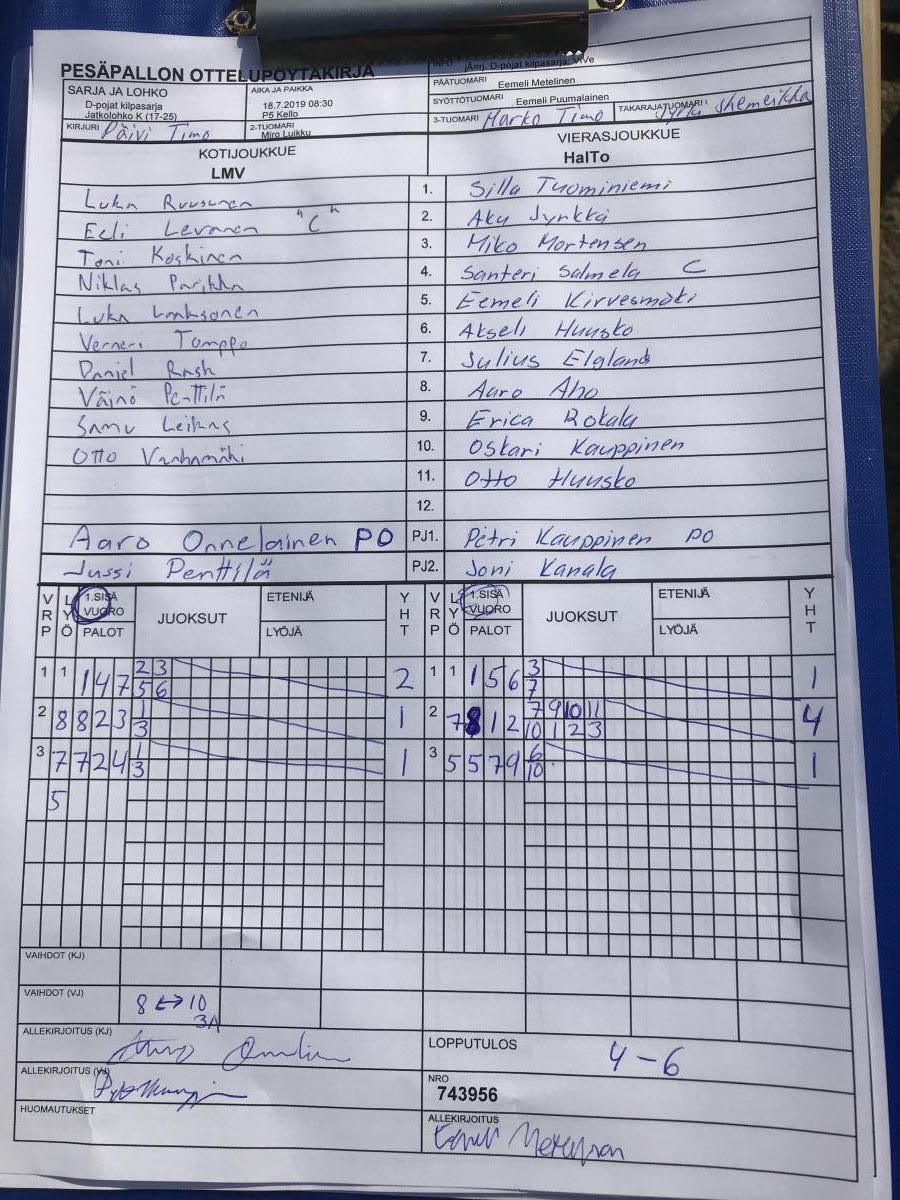 PESÄPALLON OTTELUPÖYTÄKIRJA
SARJA JA LOHKO
D-pojat kilpasarja
Jatkolohko K (17-25)
AIKA JA PAIKKA
18.7.2019 08:30
P5 Kello
KIRJURI Päivi Timo
2-TUOMARI
Miro Luikku
INFO järrj. D-pojat kilpasarja: ViVe
PÄÄTUOMARI Eemeli Metelinen
SYÖTTÖTUOMARI Eemeli Puumalainen
3-TUOMARI Marko Timo TAKARAJATUOMARI Jyrki Shemeikka
KOTIJOUKKUE
LMV
VIERASJOUKKUE
HalTo
Luka Ruusunen 1. Silla Tuominiemi
Eeli Levanen "C" 2. Aku Jyrkkä
Toni Koskinen 3. Miko Mortensen
Niklas Parikka 4. Santeri Salmela C
Luka Laaksonen 5. Eemeli Kirvesmäki
Verneri Tamppo 6. Akseli Huusko
Daniel Rask 7. Julius Elgland
Väinö Penttilä 8. Aaro Aho
Samu Leikas 9. Erica Rokala
Otto Vanhamäki 10. Oskari Kauppinen
11. Otto Huusko
12.
Aaro Onnelainen PO PJ1. Petri Kauppinen PO
Jussi Penttilä PJ2. Joni Kanala
VRP LYÖ 1.SISÄ VUORO PALOT JUOKSUT ETENIJÄ LYÖJÄ YHT VRP LYÖ 1.SISÄ VUORO PALOT JUOKSUT ETENIJÄ LYÖJÄ YHT
1 1 1 4 7 2 3 2 1 1 1 5 6 3 1
5 6 7
2 8 8 2 3 1 1 2 7 8 1 2 7 9 10 11 4
3 10 1 2 3
3 7 7 2 4 1 1 3 5 5 7 9 6 1
3 10
5
VAIHDOT (KJ)
VAIHDOT (VJ) 8 ↔ 10
3A
ALLEKIRJOITUS (KJ)
LOPPUTULOS 4 - 6
ALLEKIRJOITUS (VJ)
NRO
743956
HUOMAUTUKSET
ALLEKIRJOITUS